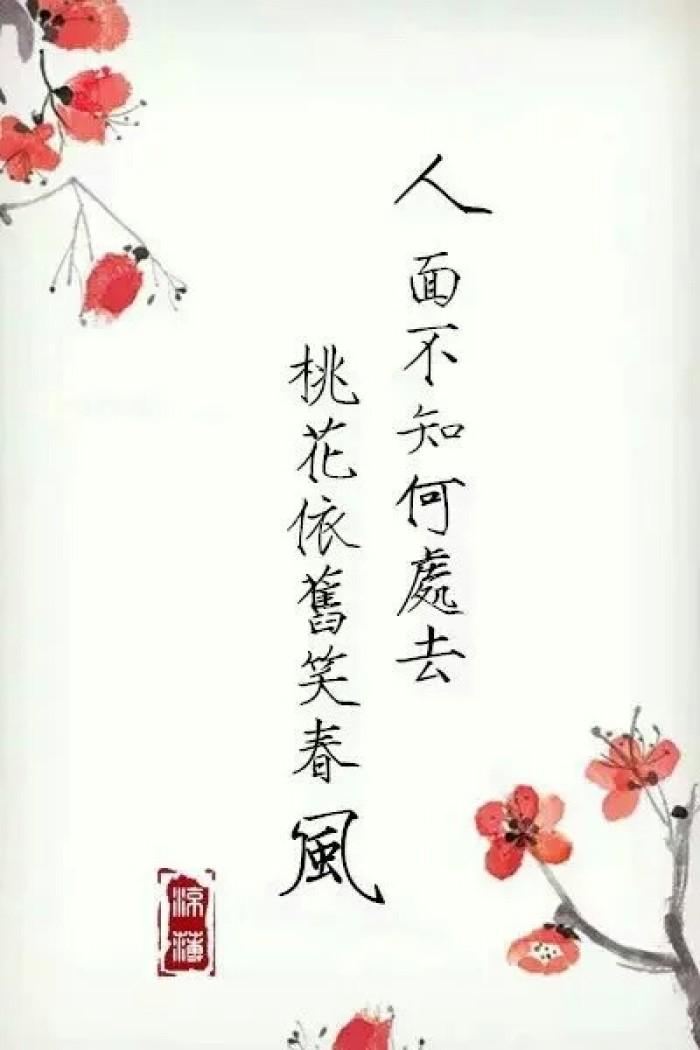 人面不知何處去
桃花依舊笑春風
涼薄